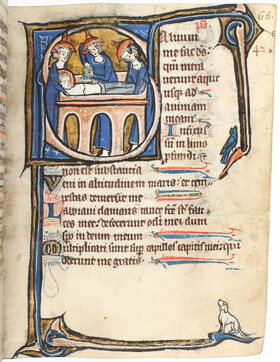 Alvum
me fac ds
qm intra
verunt aque
usq ad
animam
meam
Infixus
sum in limo
pfundi &
non est substantia
Veni in altitudinem maris et tem
pestas demersit me
Laboravi clamans rauce fce st fau
ces mee defecerunt oculi mei dum
spo in deum meum
Multiplicati sunt sup capillos capitis mei qui
oderunt me gratis